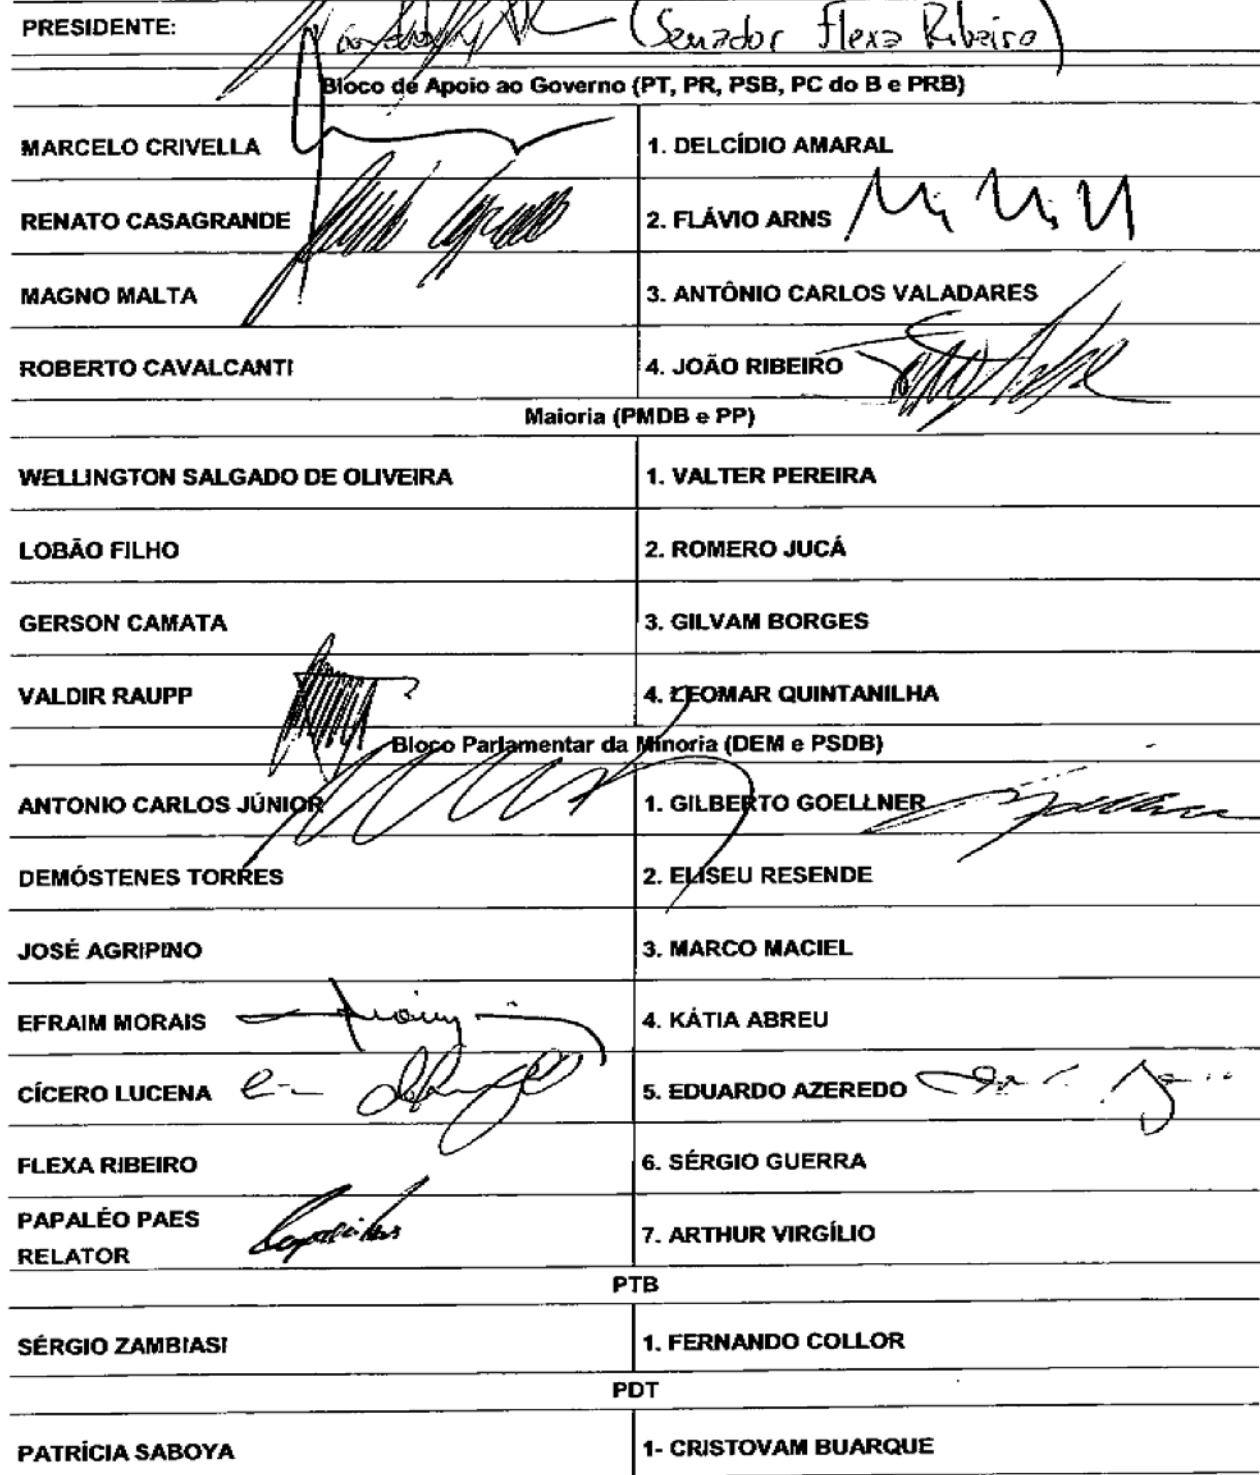 PRESIDENTE: (Senador Flexa Ribeiro)
Bloco de Apoio ao Governo (PT, PR, PSB, PC do B e PRB)
MARCELO CRIVELLA 1. DELCÍDIO AMARAL
RENATO CASAGRANDE 2. FLÁVIO ARNS
MAGNO MALTA 3. ANTÔNIO CARLOS VALADARES
ROBERTO CAVALCANTI 4. JOÃO RIBEIRO
Maioria (PMDB e PP)
WELLINGTON SALGADO DE OLIVEIRA 1. VALTER PEREIRA
LOBÃO FILHO 2. ROMERO JUCÁ
GERSON CAMATA 3. GILVAM BORGES
VALDIR RAUPP 4. LEOMAR QUINTANILHA
Bloco Parlamentar da Minoria (DEM e PSDB)
ANTONIO CARLOS JÚNIOR 1. GILBERTO GOELLNER
DEMÓSTENES TORRES 2. ELISEU RESENDE
JOSÉ AGRIPINO 3. MARCO MACIEL
EFRAIM MORAIS 4. KÁTIA ABREU
CÍCERO LUCENA 5. EDUARDO AZEREDO
FLEXA RIBEIRO 6. SÉRGIO GUERRA
PAPALÉO PAES
RELATOR 7. ARTHUR VIRGÍLIO
PTB
SÉRGIO ZAMBIASI 1. FERNANDO COLLOR
PDT
PATRÍCIA SABOYA 1- CRISTOVAM BUARQUE